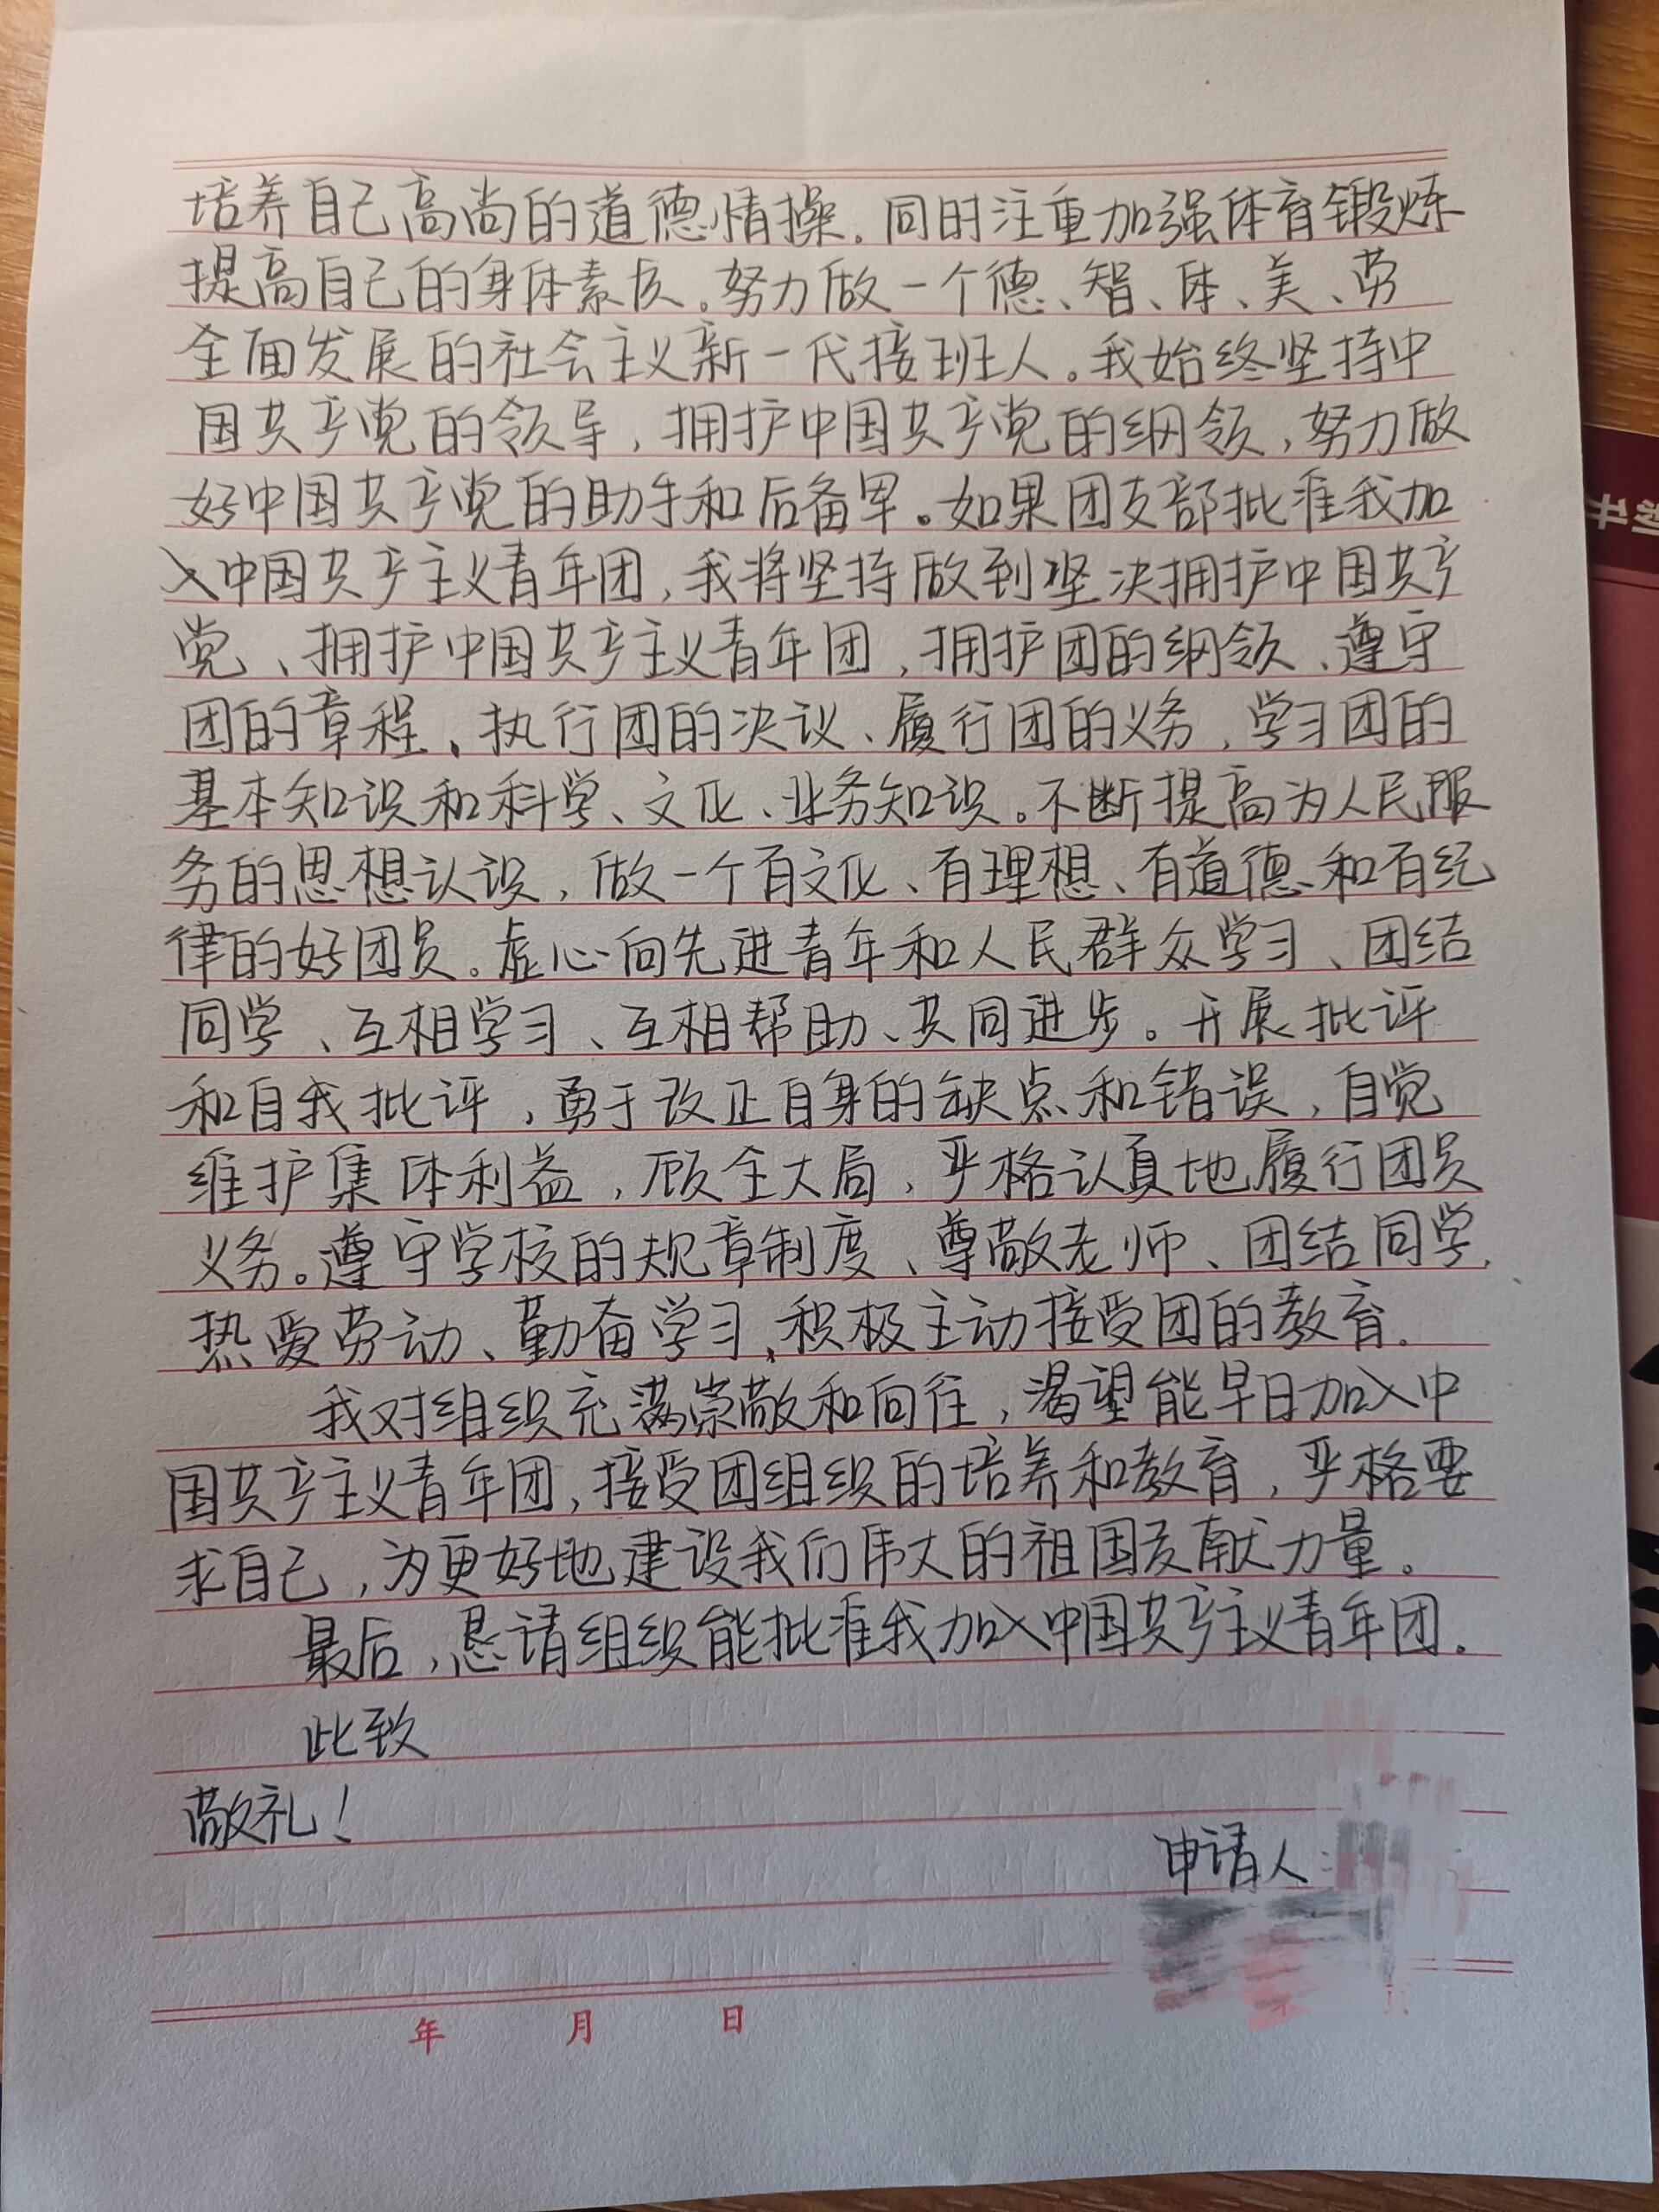 培养自己高尚的道德情操。同时注重加强体育锻炼
提高自己的身体素质。努力做一个德、智、体、美、劳
全面发展的社会主义新一代接班人。我始终坚持中
国共产党的领导，拥护中国共产党的纲领，努力做
好中国共产党的助手和后备军。如果团支部批准我加
入中国共产主义青年团，我将坚持做到坚决拥护中国共产
党、拥护中国共产主义青年团，拥护团的纲领、遵守
团的章程、执行团的决议、履行团的义务，学习团的
基本知识和科学、文化、业务知识。不断提高为人民服
务的思想认识，做一个有文化、有理想、有道德和有纪
律的好团员。虚心向先进青年和人民群众学习、团结
同学、互相学习、互相帮助、共同进步。开展批评
和自我批评，勇于改正自身的缺点和错误，自觉
维护集体利益，顾全大局，严格认真地履行团员
义务。遵守学校的规章制度、尊敬老师、团结同学、
热爱劳动、勤奋学习、积极主动接受团的教育。
我对组织充满崇敬和向往，渴望能早日加入中
国共产主义青年团，接受团组织的培养和教育，严格要
求自己，为更好地建设我们伟大的祖国贡献力量。
最后，恳请组织能批准我加入中国共产主义青年团。
此致
敬礼！
申请人：
年 月 日